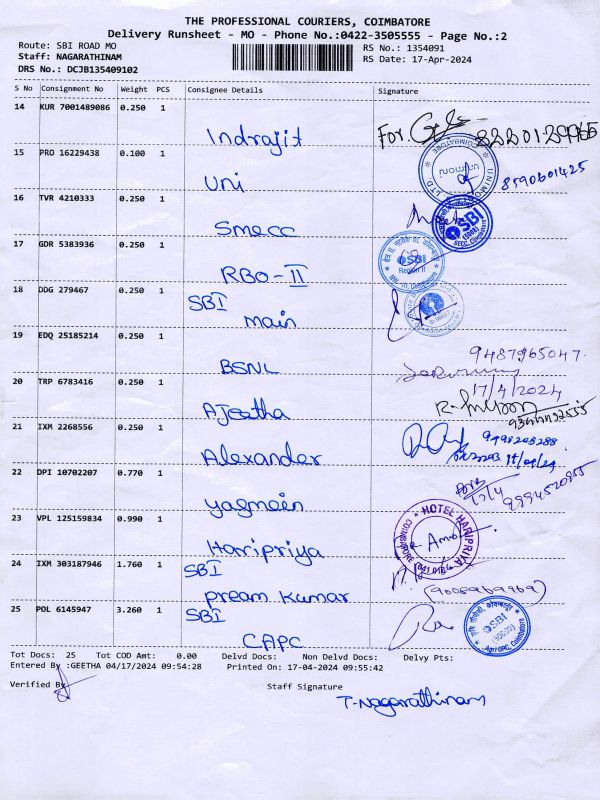 THE PROFESSIONAL COURIERS, COIMBATORE
Delivery Runsheet - MO - Phone No.:0422-3505555 - Page No.:2
Route: SBI ROAD MO
RS No.: 1354091
Staff: NAGARATHINAM
RS Date: 17-Apr-2024
DRS No.: DCJB135409102
S No Consignment No Weight PCS Consignee Details Signature
14 KUR 7001489086 0.250 1
Indrajit For.
15 PRO 16229438 0.100 1
Uni 8590601425
16 TVR 4210333 0.250 1
Smecc SBI
17 GDR 5383936 0.250 1
RBO-II SBI Region II
18 DDG 279467 0.250 1
SBI
main
19 EDQ 25185214 0.250 1
BSNL 9487965047
20 TRP 6783416 0.250 1 17/4/2024
Ajeetha
21 IXM 2268556 0.250 1
Alexander
22 DPI 10702207 0.770 1
yasmein 17/4
23 VPL 125159834 0.990 1 HOTEL HARIPRIYA COIMBATORE
Harripriya
24 IXM 303187946 1.760 1
SBI
pream kumar
25 POL 6145947 3.260 1
SBI
CAPC SBI
Tot Docs: 25 Tot COD Amt: 0.00 Delvd Docs: Non Delvd Docs: Delvy Pts:
Entered By :GEETHA 04/17/2024 09:54:28 Printed On: 17-04-2024 09:55:42
Verified By
Staff Signature
T-Nagarathinam